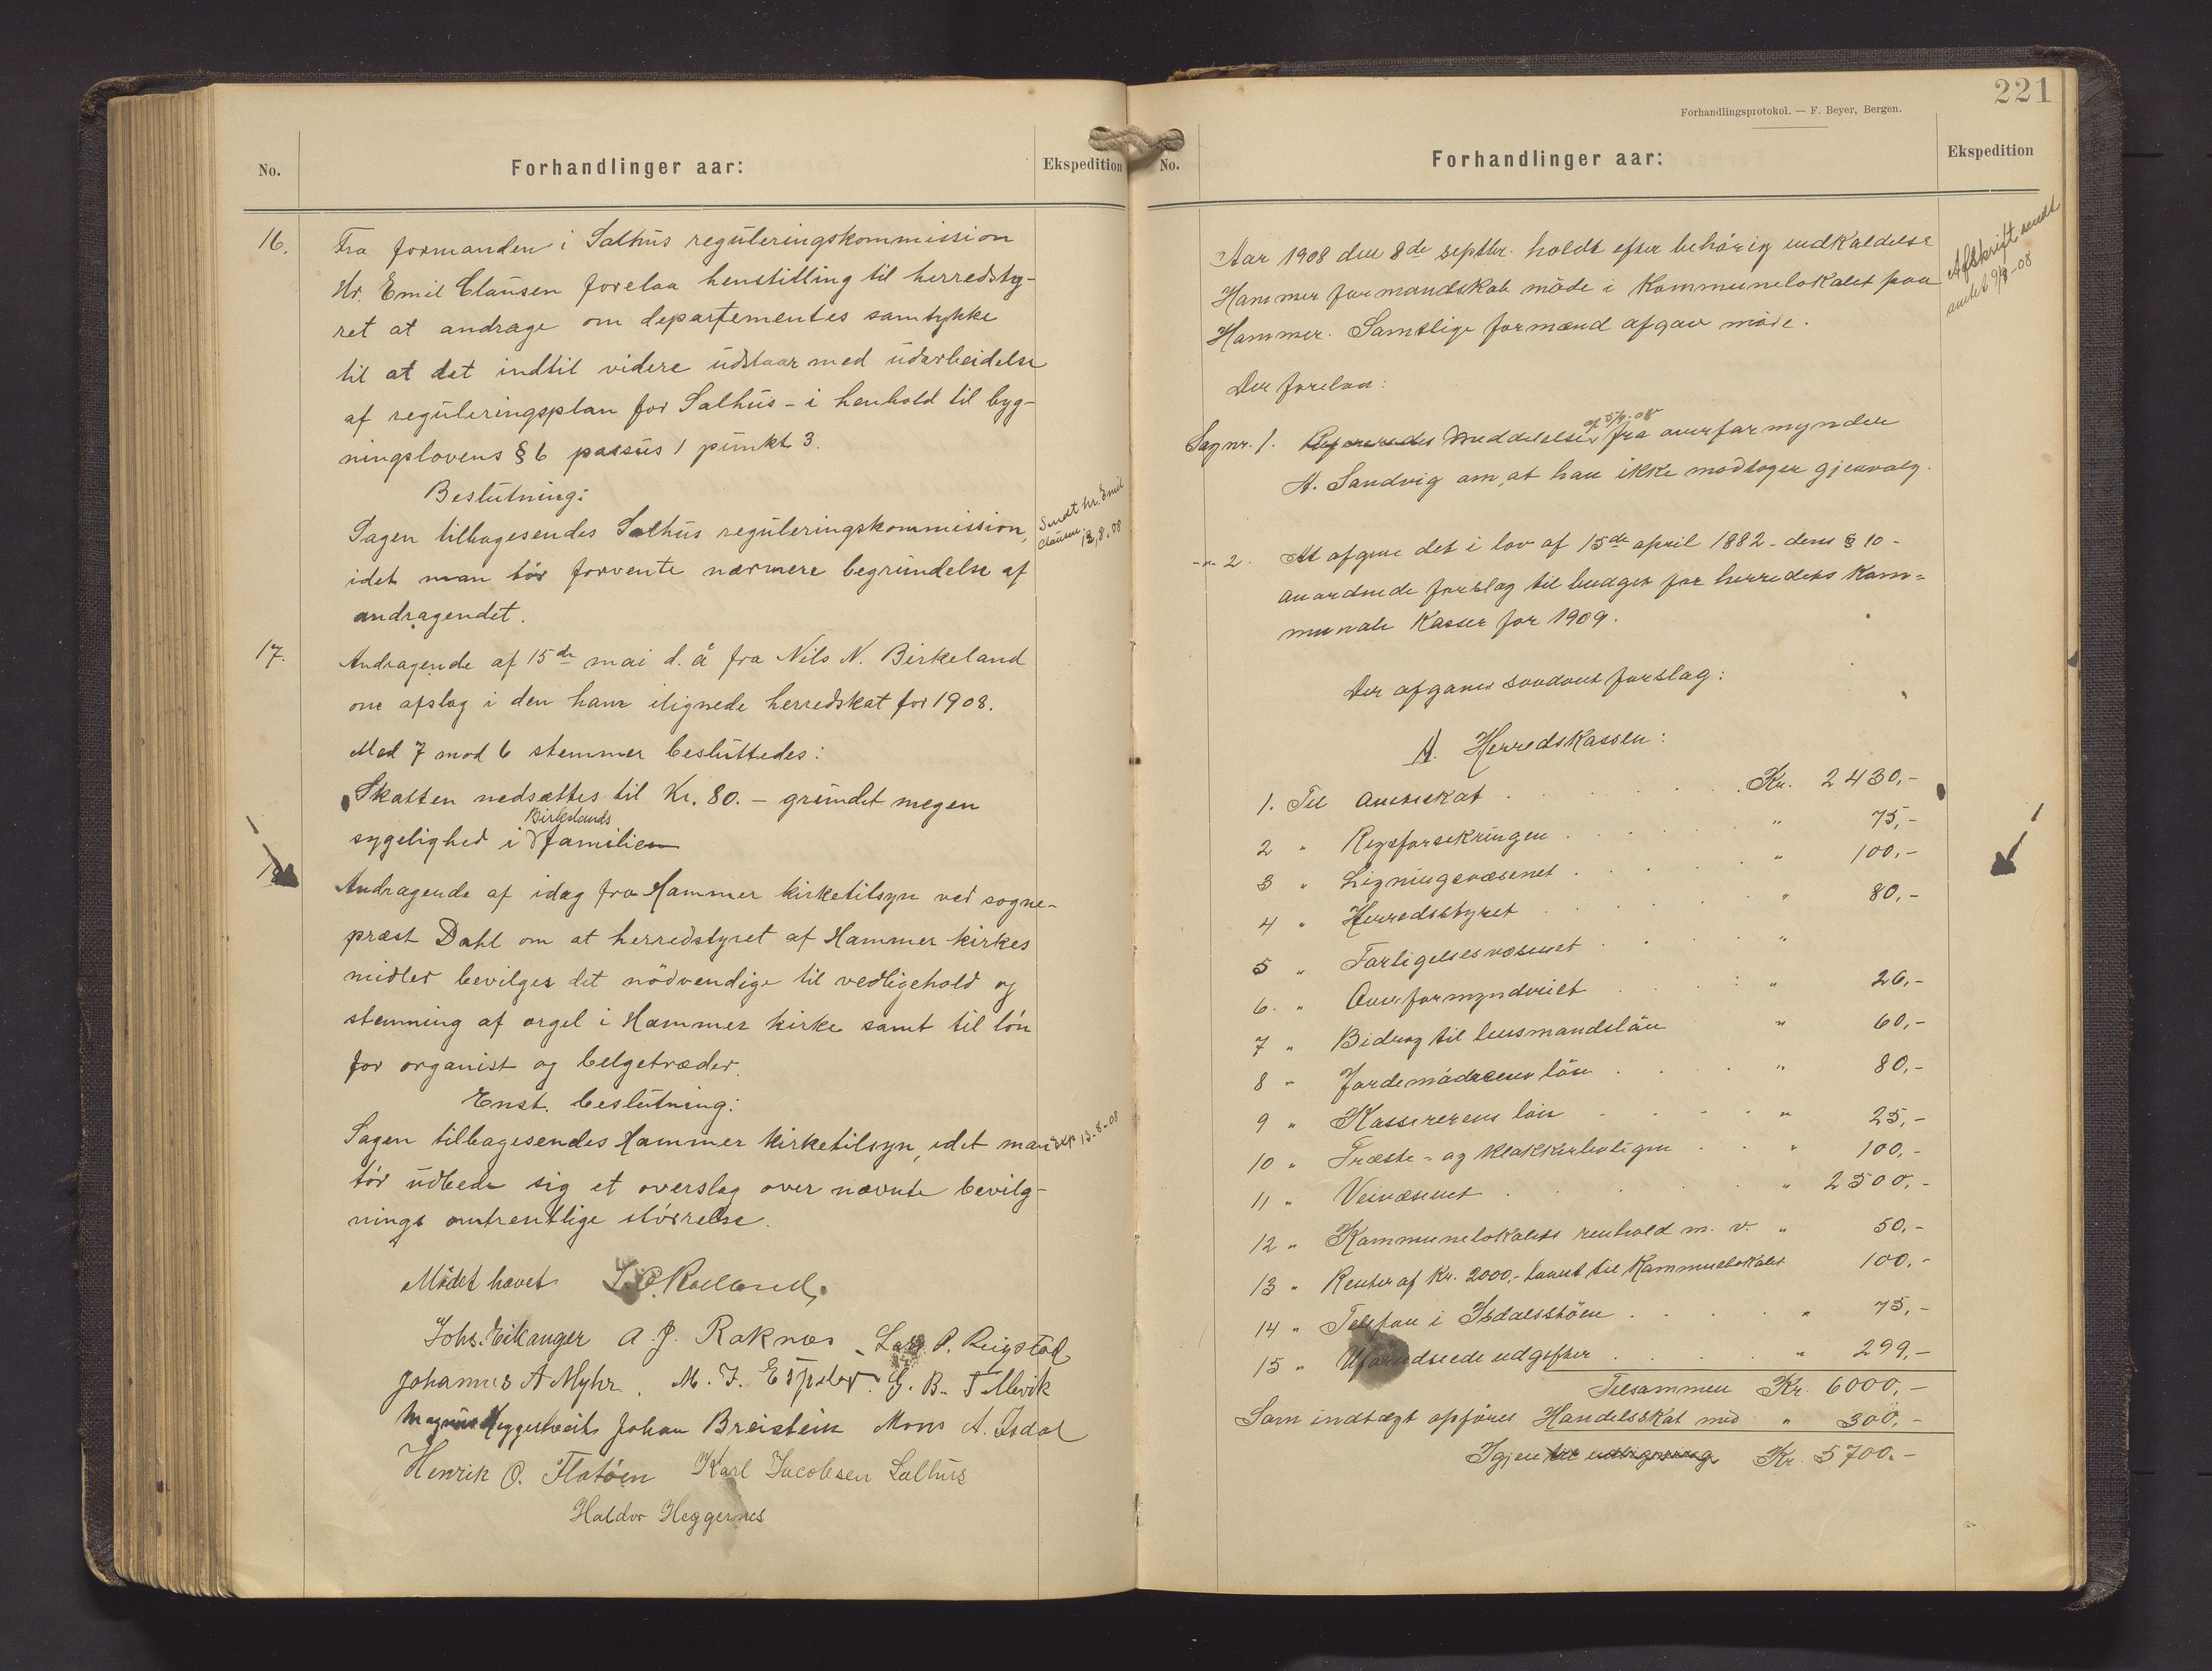 No.
Forhandlinger aar:
Ekspedition
16.
Fra formanden i Salhus reguleringskommission
Hr. Emil Clausen forelaa henstilling til herredsty-
ret at andrage om departementes samtykke
til at det indtil videre udstaar med udarbeidelse
af reguleringsplan for Salhus - i henhold til byg-
ningslovens § 6 passus 1 punkt 3.
Beslutning:
Sagen tilbagesendes Salhus reguleringskommission,
idet man tör forvente nærmere begrundelse af
andragendet.
Sendt hr. Emil
Clausen 13.8.08
17.
Andragende af 15de mai d. å fra Nils N. Birkeland
om afslag i den ham ilignede herredskat for 1908.
Med 7 mod 6 stemmer besluttedes:
Skatten nedsættes til Kr. 80. - grundet megen
Birkelands
sygelighed i familien
18
Andragende af idag fra Hammer kirketilsyn ved sogne-
præst Dahl om at herredstyret af Hammer kirkes
midler bevilges det nödvendige til vedligehold og
stemning af orgel i Hammer kirke samt til lön
for organist og belgetræder.
Enst. beslutning:
Sagen tilbagesendes Hammer kirketilsyn, idet man
tör udbede sig et overslag over nævnte bevilg-
nings omtrentlige störrelse.
13-8-08
Mödet hævet
Johs. Eikanger A. J. Raknes Lars P. Reigstad
Johannes A Myhr. M. J. G. B. Tellevik
Magnus Johan Breistein Mons A. Isdal
Henrik O. Flatöen Karl Jacobsen Salhus
Haldor Heggernes
221
Forhandlingsprotokol. — F. Beyer, Bergen.
No.
Forhandlinger aar:
Ekspedition
Aar 1908 den 8de septbr. holdt efter behörig indkaldelse
Hammer formandskab möde i Kommunelokalet paa
Hammer. Samtlige formænd afgav möde.
Afskrift sendt
amtet 9/9-08
Der forelaa:
af 5/9-08
Sag nr. 1. Refereredes Meddelelse fra overformynder
A. Sandvig om, at han ikke modtager gjenvalg.
-"- 2. At afgive det i lov af 15de april 1882 - dens § 10 -
anordnede forslag til budget for herredets kom-
munale Kasser for 1909.
Der afgaves saadant forslag:
A. Herredskassen:
1. Til Amtsskat Kr. 2430,-
2 " Rigsforsikringen " 75,-
3 " Ligningsvæsenet " 100,-
4 " Herredsstyret " 80,-
5 " Forligelsesvæsenet "
6. " Overformynderiet " 26,-
7 " Bidrag til lensmandslön " 60,-
8 " Jordemödrenes lön " 80,-
9 " Kassererens lön " 25,-
10 " Præste- og klokkerboligen " 100,-
11 " Veivæsenet " 2500,-
12 " Kommunelokalets renhold m. v. " 50,-
13 " Renter af Kr. 2000,- laant til Kommunelokalet 100,-
14 " Telefon i Isdalsstöen " 75,-
15 " Uforudseede udgifter " 299,-
Tilsammen Kr. 6000,-
Som indtægt opföres Handelsskat med " 300,-
Igjen til udligning Kr. 5700.-